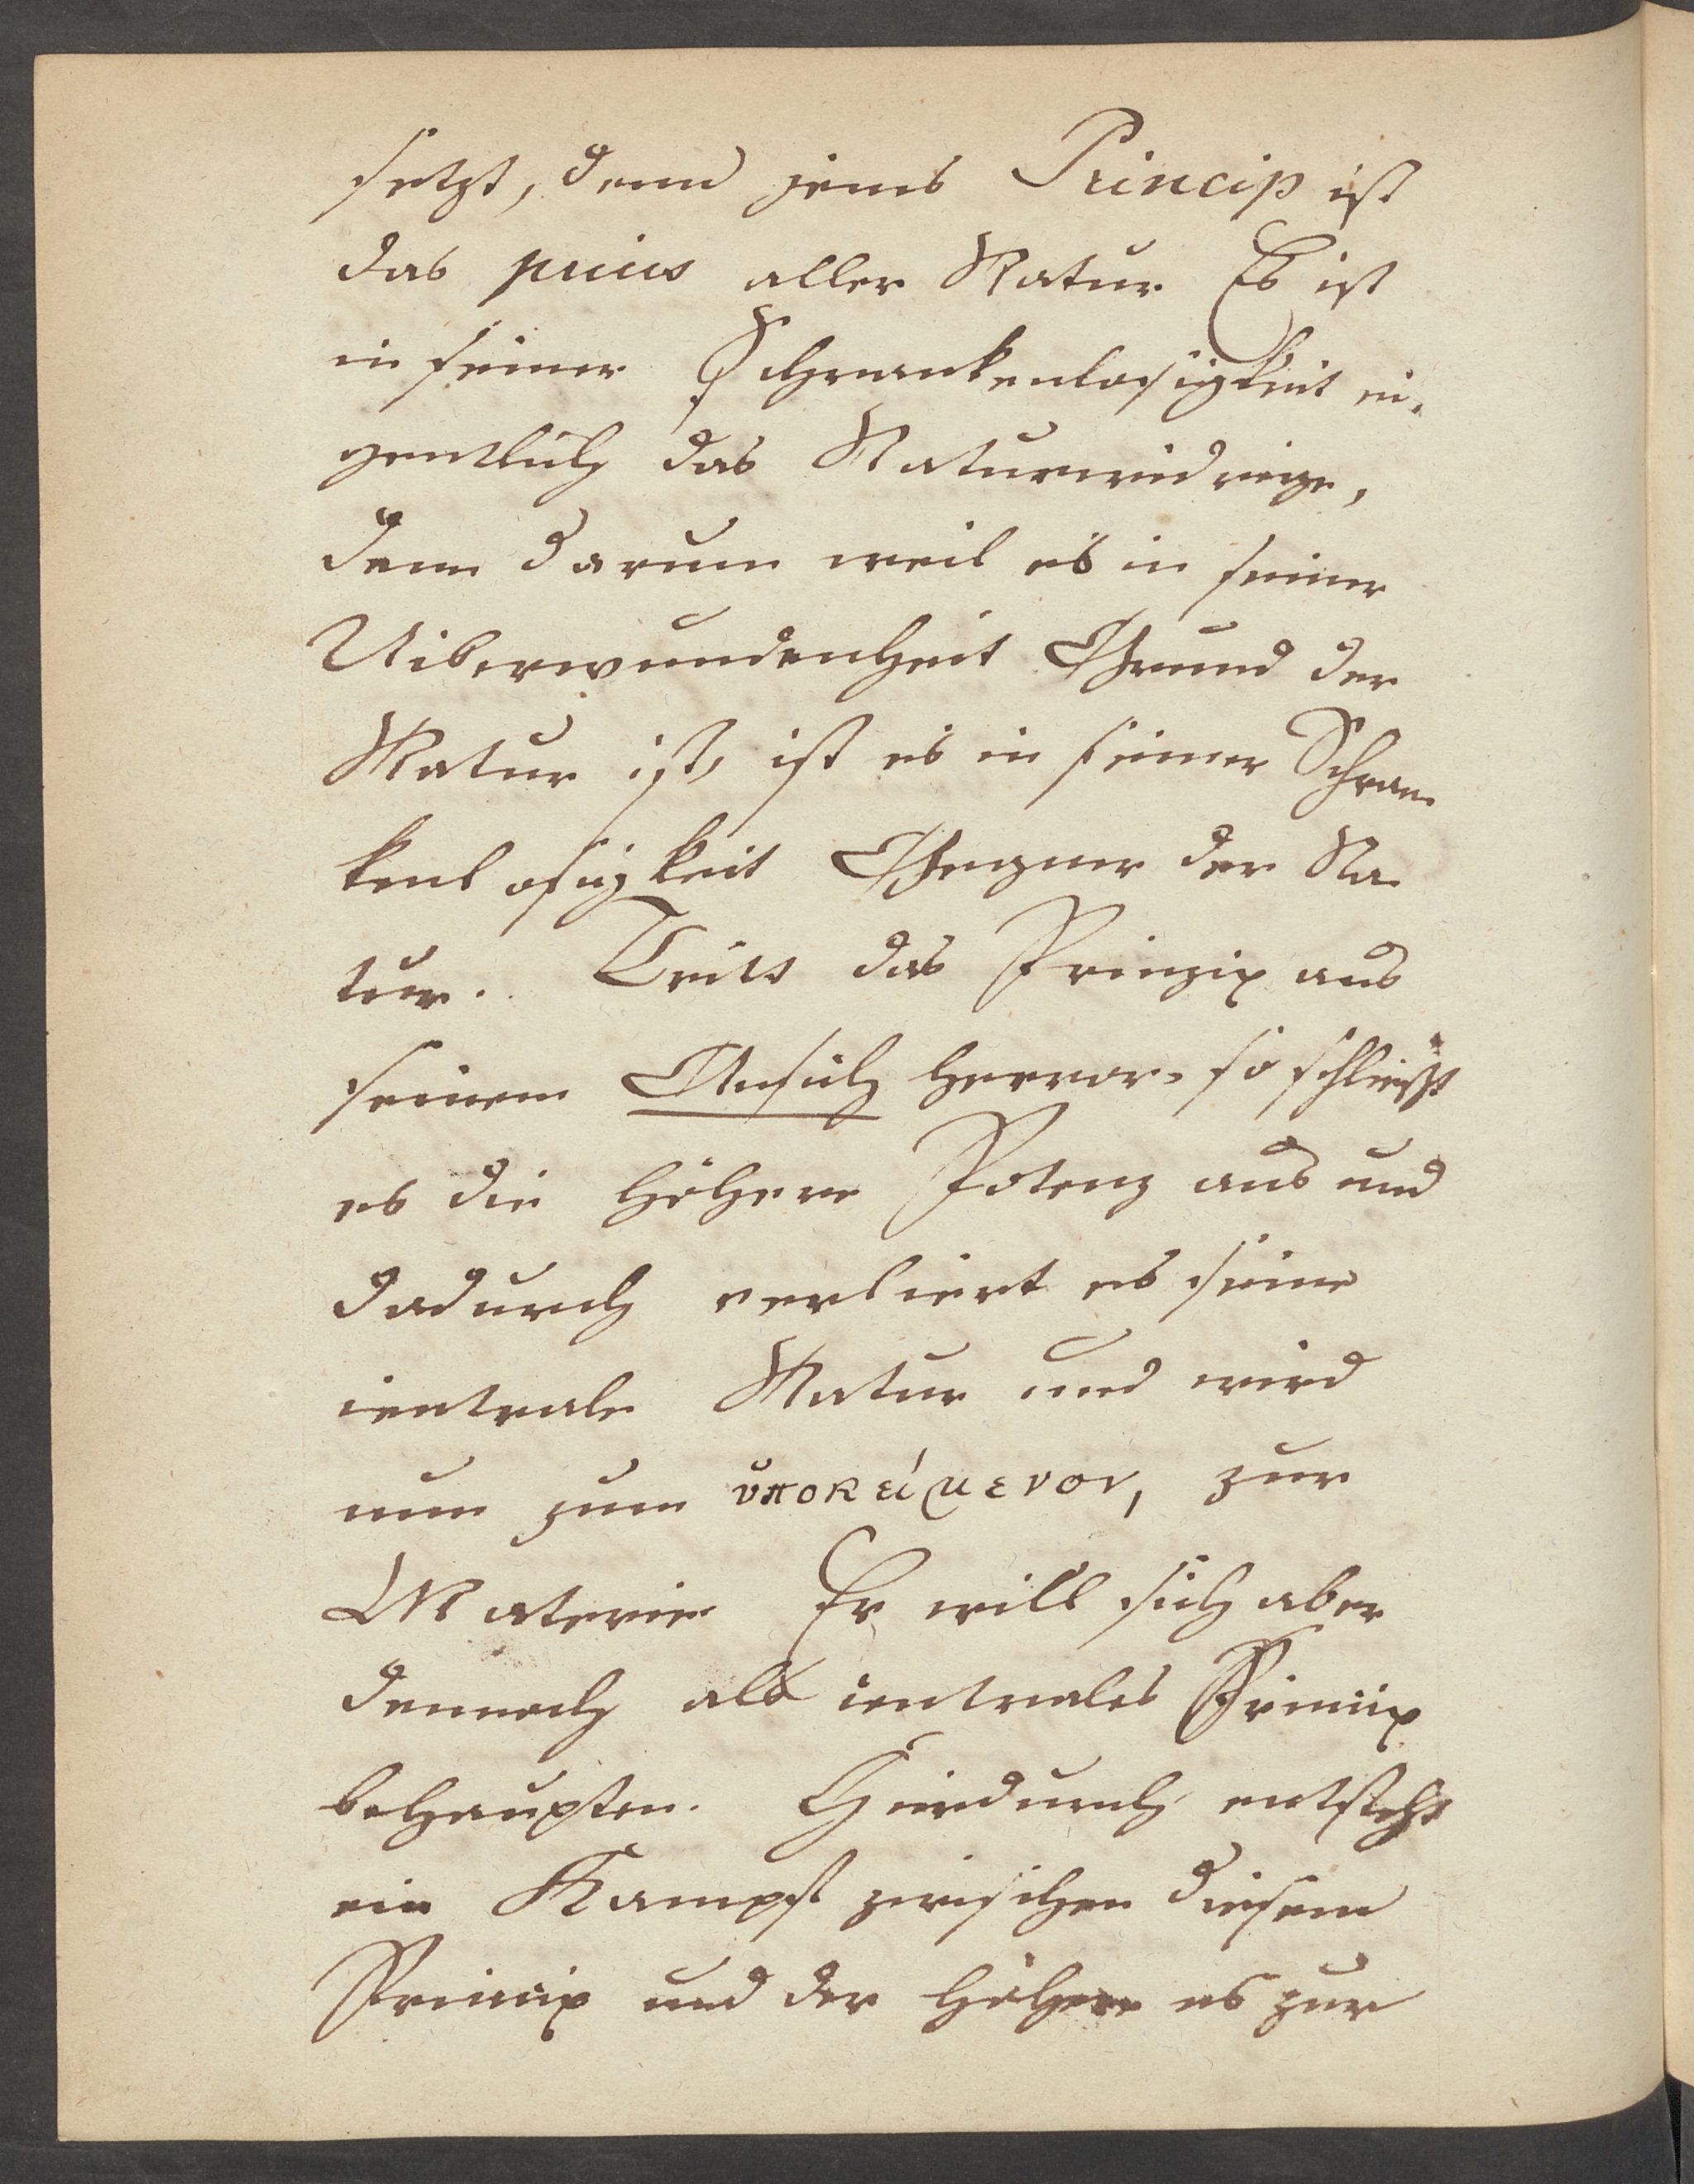 setzt, denn jenes Princip ist
das prius aller Natur Es ist
in seiner Schrankenlosigkeit ei-
gentlich das Naturwidrige,
denn darum weil es in seiner
Uiberwundenheit Grund der
Natur ist, ist es in seiner Schran-
kenlosigkeit Gegner der Na-
tur. Tritt das Prinzip aus
seinem Ansich hervor, so schließt
es die höhere Potenz aus und
dadurch verliert es seine
centrale Natur und wird
nun zum ὑποκείμενον, zur
Materie Er will sich aber
dennoch als centrales Princip
behaupten. Hierdurch entsteht
ein Kampf zwischen diesem
Princip und der höhere es zur